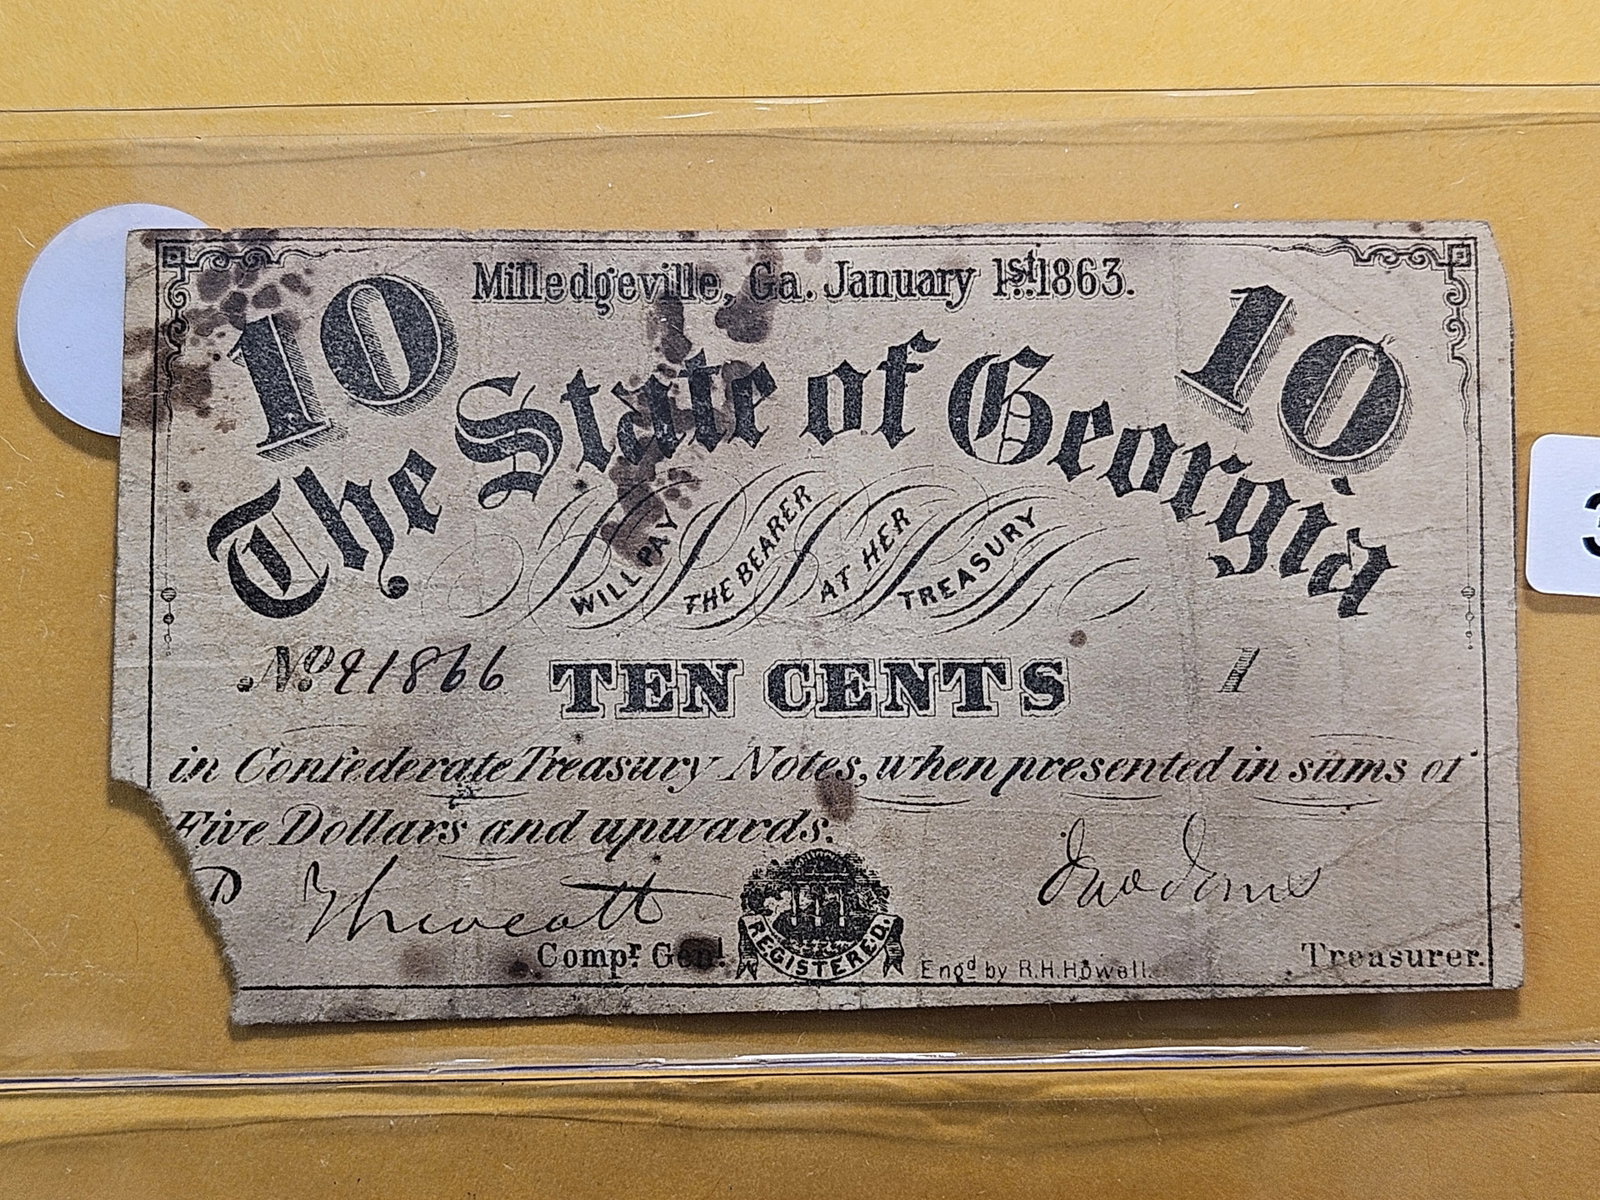 10 Milledgeville, Ga. January 1st 1863. 10
The State of Georgia
WILL PAY THE BEARER AT HER TREASURY
No 91866 TEN CENTS 1
in Confederate Treasury Notes, when presented in sums of
Five Dollars and upwards.
P Thweatt Jno Jones
Compr. Genl. REGISTERED. Engd by R.H.Howell. Treasurer.
3